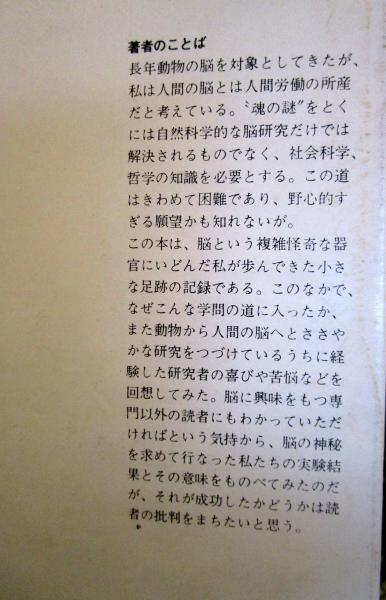 著者のことば
長年動物の脳を対象としてきたが、
私は人間の脳とは人間労働の所産
だと考えている。〝魂の謎〟をとく
には自然科学的な脳研究だけでは
解決されるものでなく、社会科学、
哲学の知識を必要とする。この道
はきわめて困難であり、野心的す
ぎる願望かも知れないが。
この本は、脳という複雑怪奇な器
官にいどんだ私が歩んできた小さ
な足跡の記録である。このなかで、
なぜこんな学問の道に入ったか、
また動物から人間の脳へとささや
かな研究をつづけているうちに経
験した研究者の喜びや苦悩などを
回想してみた。脳に興味をもつ専
門以外の読者にもわかっていただ
ければという気持から、脳の神秘
を求めて行なった私たちの実験結
果とその意味をものべてみたのだ
が、それが成功したかどうかは読
者の批判をまちたいと思う。